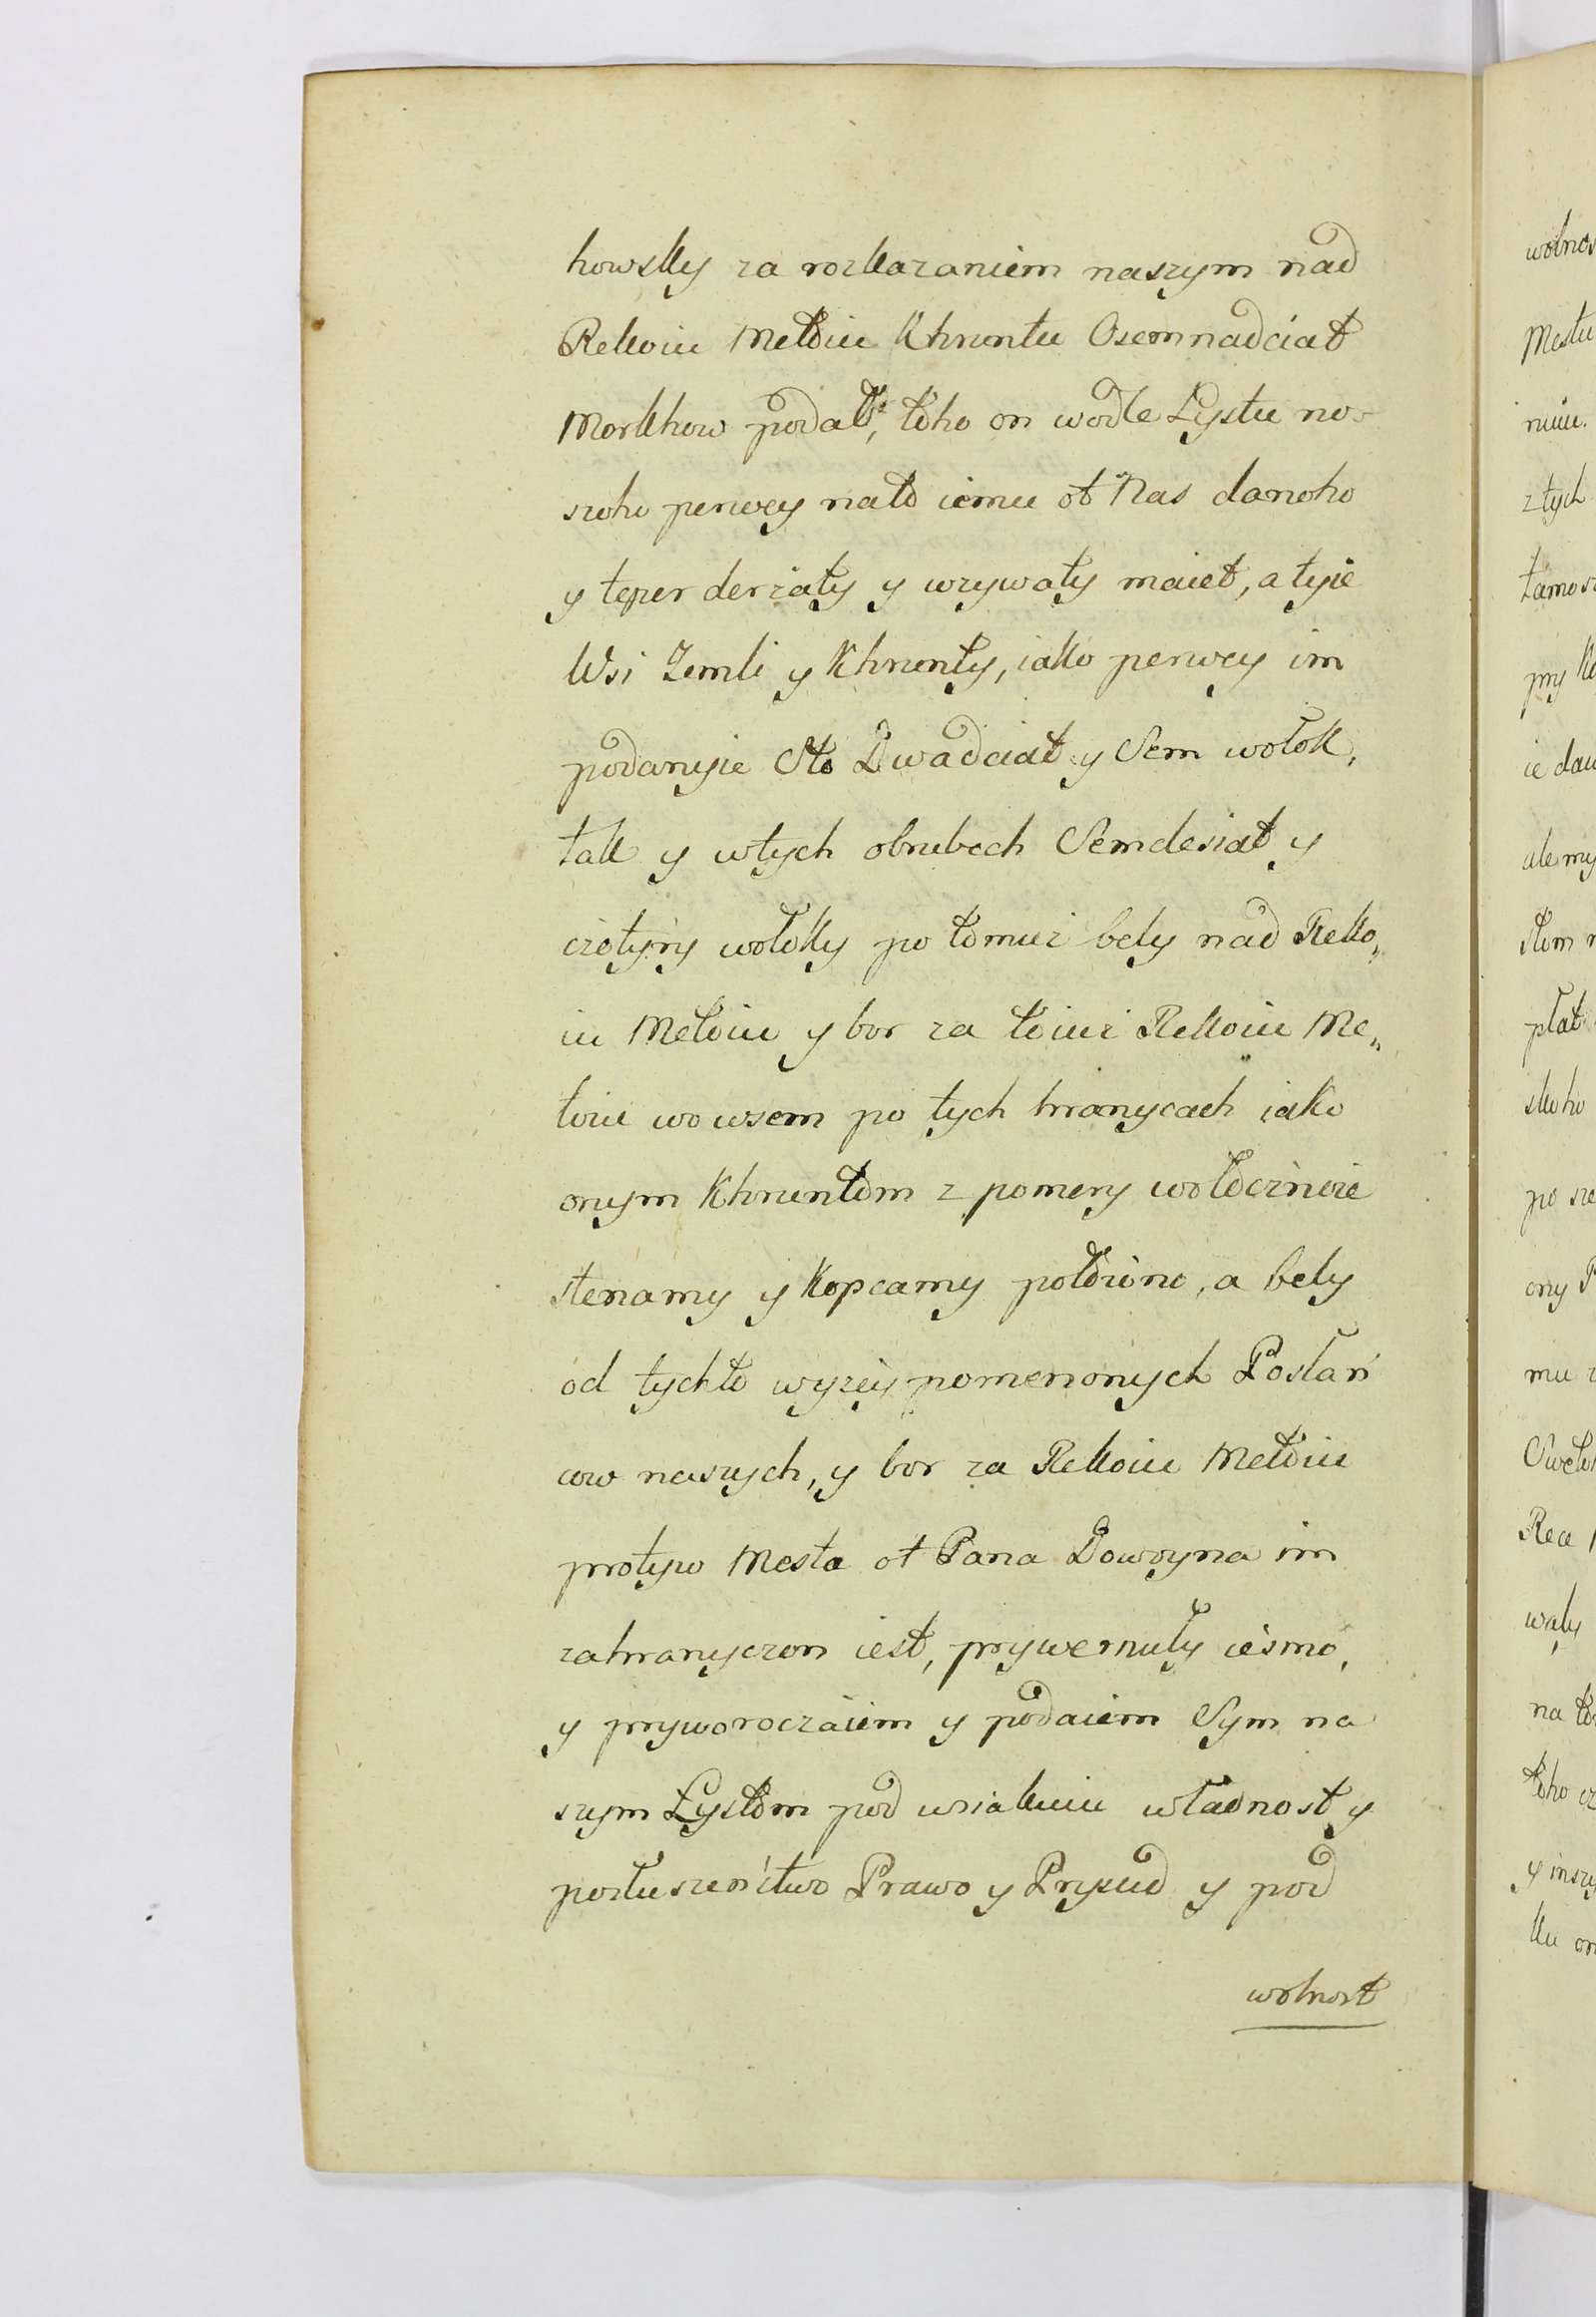 howsky za rozkazaniem naszym nad
Rekoiu Meltoiu Khruntu Osemnadciat
Morkhow podał, toho on wodle Lystu na-
szoho perwey nato iemu ot Nas danoho
y teper derżaty y wżywaty maiet, a tyie
Wsi Zemli y Khrunty, iako perwey im
podanyie Sto Dwadciat y Sem wołok,
tak y wtych obrubech Semdesiat y
czotyry wołoky po tomuż bely nad Reko„
iu Mełtoiu y bor za toiuż Rekoiu Me„
toiu wo wsem po tych hranycach iako
onym Khruntom z pomery wołocznoie
stenamy y kopcamy położono, a bely
od tychto wyżey pomenenych Posłań
cow naszych, y bor za Rekoiu Meltoiu
protyw Mesta ot Pana Dowoyna im
zahranyczon iest, prywernuły iesmo,
y pryworoczaiem y podaiem Sym na
szym Lystom pod wsiakuiu władnost y
posłuszeństwo Prawo y Prysud y pod
wolnost
wolnos
Mestu
niuiu.
z tych
tamosz
pry
ie daw
ale my
stom
płat
skoho
po sze
ony
mu
Rece
waly
na to
toho cz
y inszy
ku on